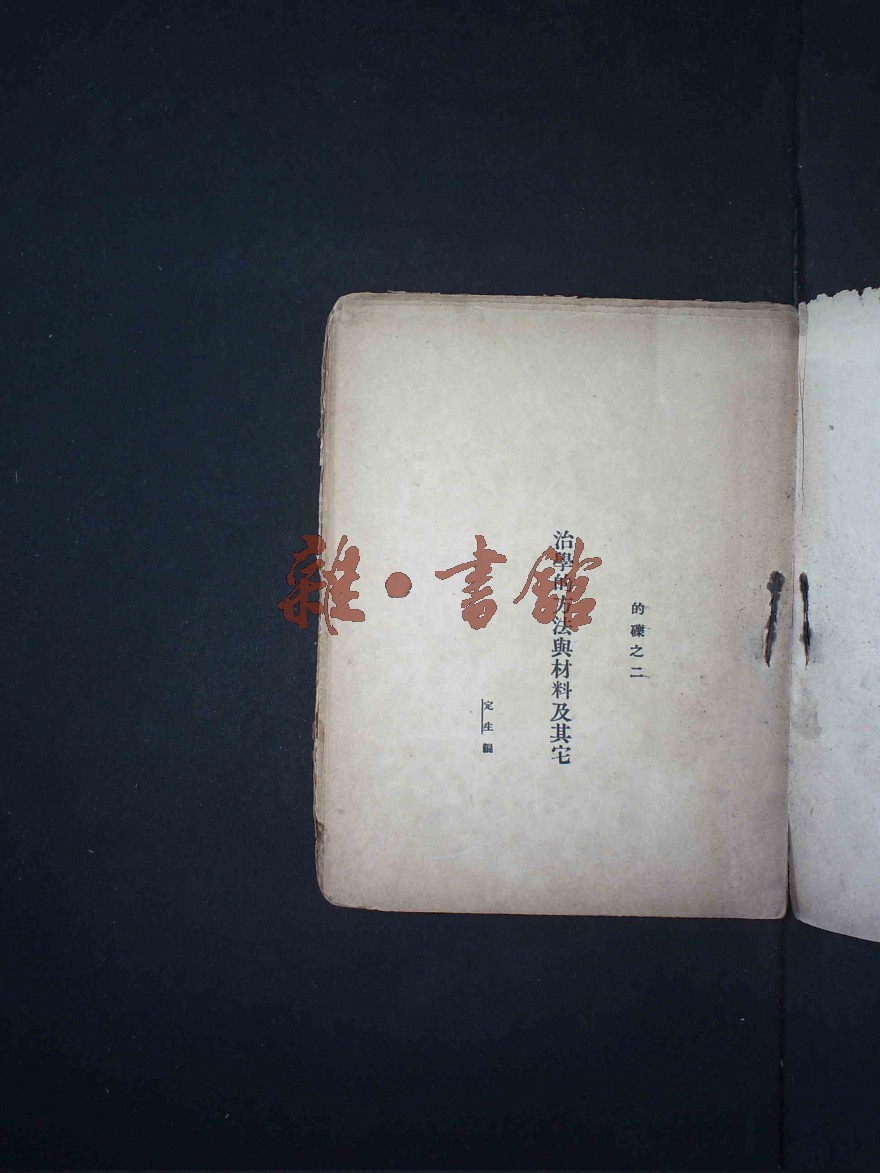 的礫之二
治學的方法與材料及其宅
定生編
雜·書館